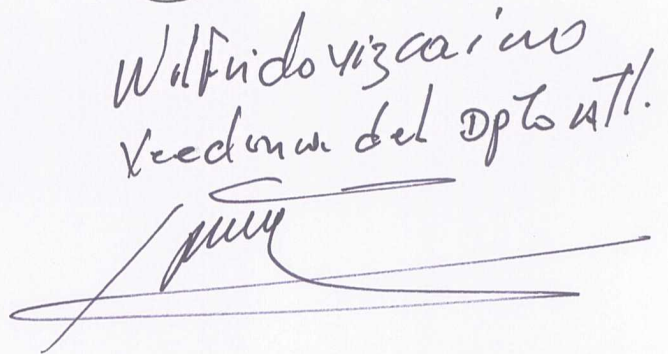 Wilfrido Vizcaino
Veeduria del Dpto Atl.